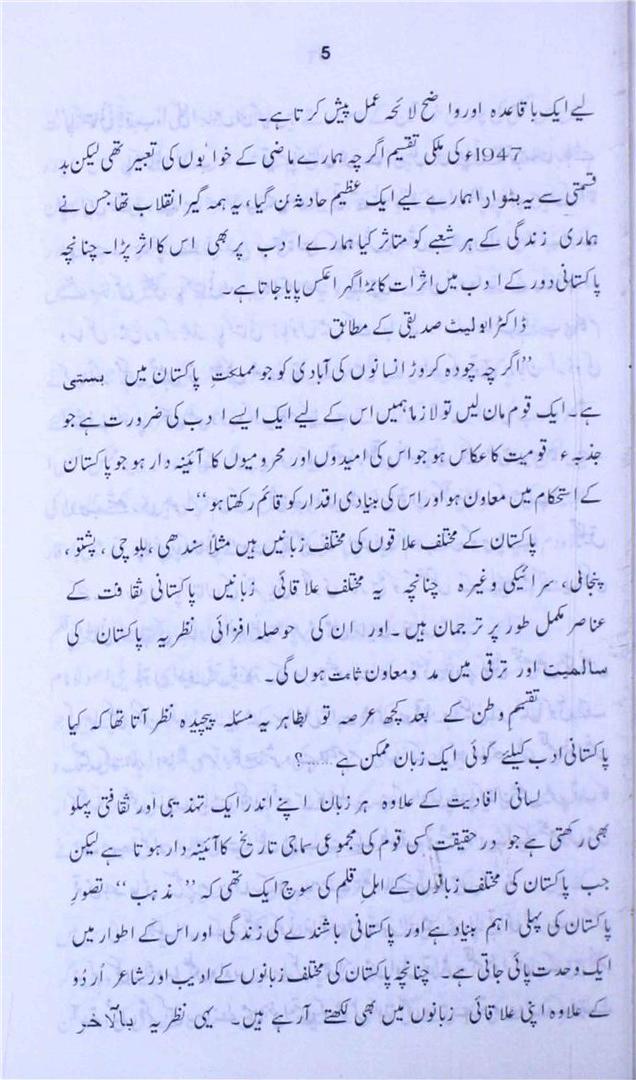 5
لیے ایک باقاعدہ اور واضح لائحہ عمل پیش کرتا ہے۔
1947ء کی ملکی تقسیم اگرچہ ہمارے ماضی کے خوابوں کی تعبیر تھی لیکن بد
قسمتی سے یہ بٹوارا ہمارے لیے ایک عظیم حادثہ بن گیا، یہ ہمہ گیر انقلاب تھا جس نے
ہماری زندگی کے ہر شعبے کو متاثر کیا ہمارے ادب پر بھی اس کا اثر پڑا۔ چنانچہ
پاکستانی دور کے ادب میں اثرات کا بڑا گہرا عکس پایا جاتا ہے۔
ڈاکٹر ابولیث صدیقی کے مطابق
”اگرچہ چودہ کروڑ انسانوں کی آبادی کو جو مملکتِ پاکستان میں بستی
ہے۔ ایک قوم مان لیں تو لازماً ہمیں اس کے لیے ایک ایسے ادب کی ضرورت ہے جو
جذبۂ قومیت کا عکاس ہو جو اس کی امیدوں اور محرومیوں کا آئینہ دار ہو جو پاکستان
کے استحکام میں معاون ہو اور اس کی بنیادی اقدار کو قائم رکھتا ہو“۔
پاکستان کے مختلف علاقوں کی مختلف زبانیں ہیں مثلاً سندھی، بلوچی، پشتو،
پنجابی، سرائیکی وغیرہ۔ چنانچہ یہ مختلف علاقائی زبانیں پاکستانی ثقافت کے
عناصر مکمل طور پر ترجمان ہیں۔ اور ان کی حوصلہ افزائی نظریہ پاکستان کی
سالمیت اور ترقی میں مدد و معاون ثابت ہوں گی۔
تقسیم وطن کے بعد کچھ عرصہ تو بظاہر یہ مسئلہ پیچیدہ نظر آتا تھا کہ کیا
پاکستانی ادب کیلئے کوئی ایک زبان ممکن ہے......؟
لسانی افادیت کے علاوہ ہر زبان اپنے اندر ایک تہذیبی اور ثقافتی پہلو
بھی رکھتی ہے جو در حقیقت کسی قوم کی مجموعی سماجی تاریخ کا آئینہ دار ہوتا ہے لیکن
جب پاکستان کی مختلف زبانوں کے اہل قلم کی سوچ ایک تھی کہ ”مذہب“ تصورِ
پاکستان کی پہلی اہم بنیاد ہے اور پاکستانی باشندے کی زندگی اور اس کے اطوار میں
ایک وحدت پائی جاتی ہے۔ چنانچہ پاکستان کی مختلف زبانوں کے ادیب اور شاعر اُردو
کے علاوہ اپنی علاقائی زبانوں میں بھی لکھتے آرہے ہیں۔ یہی نظریہ بالآخر